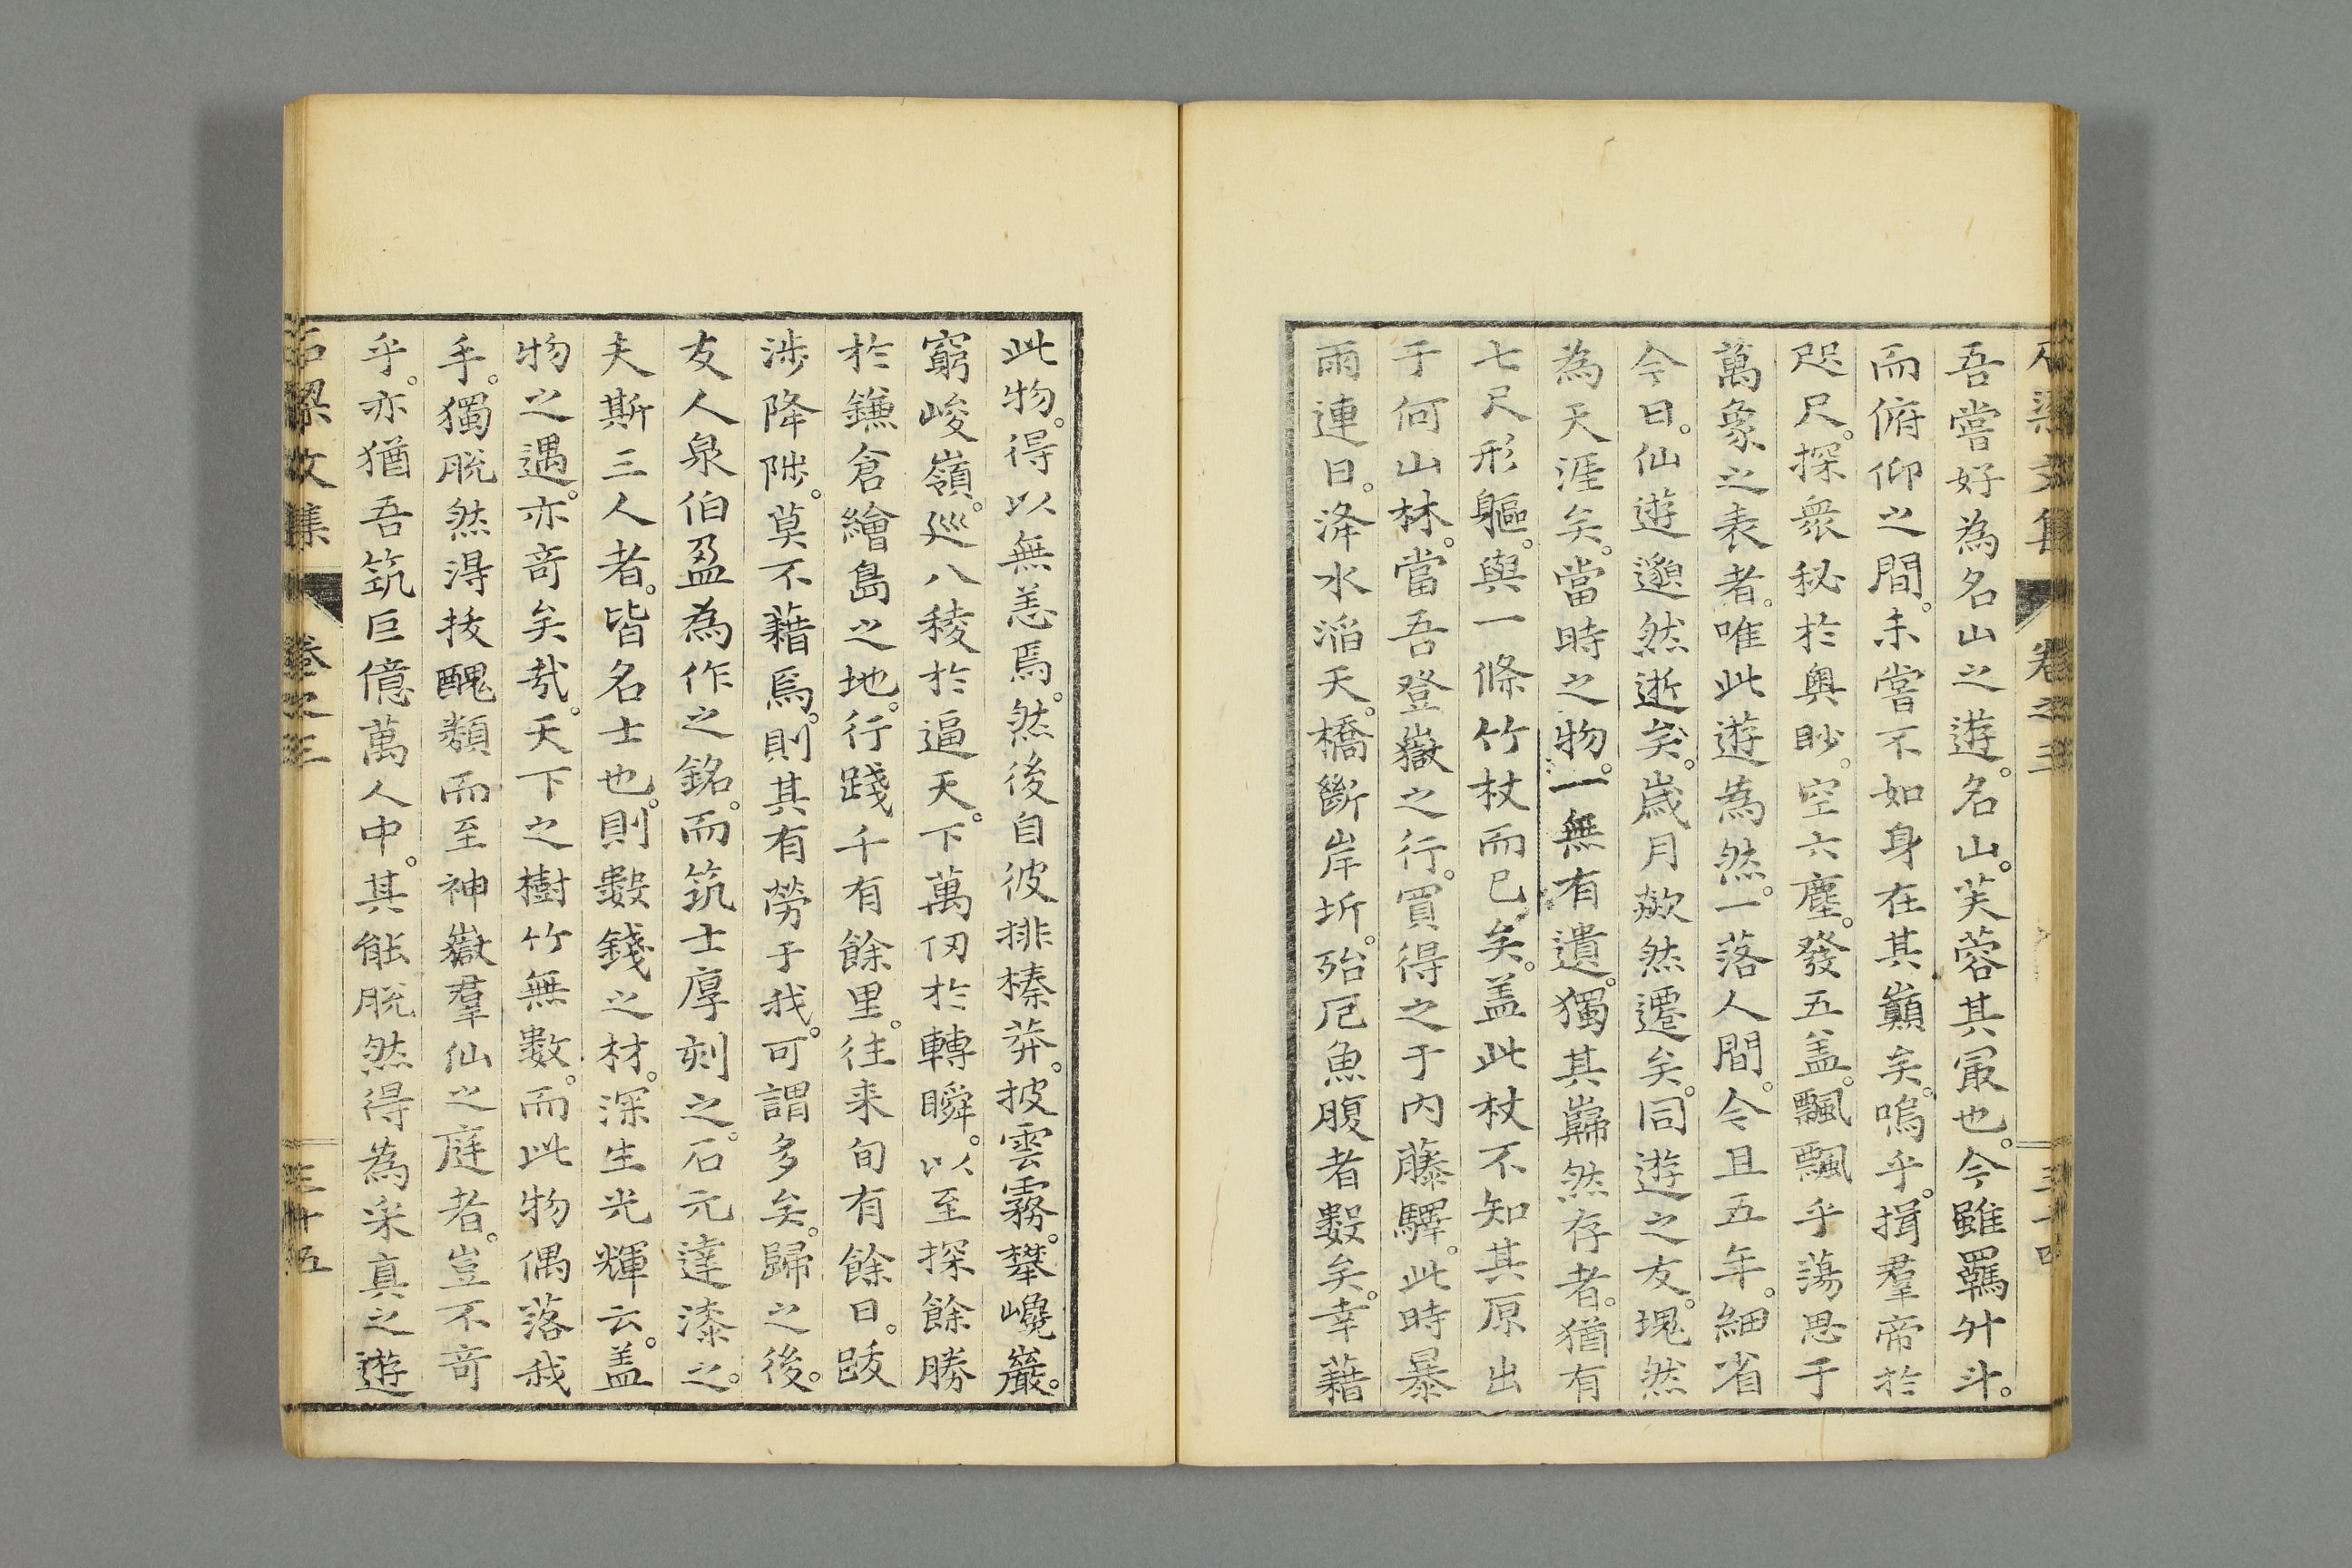 石梁文集 卷之三 三十四
吾嘗好為名山之遊。名山。芙蓉其冣也。今雖羈升斗。
而俯仰之間。未嘗不如身在其巔矣。嗚乎。揖羣帝於
咫尺。探衆秘於奧眇。空六塵。發五盖。飄飄乎蕩思于
萬象之表者。唯此遊為然。一落人間。今且五年。細省
今日。仙遊邈然逝矣。歲月欻然遷矣。同遊之友。塊然
為天涯矣。當時之物。一無有遺。獨其巋然存者。猶有
七尺形軀。與一條竹杖而已矣。盖此杖不知其原出
于何山林。當吾登嶽之行。買得之于內藤驛。此時暴
雨連日。洚水滔天。橋斷岸圻。殆厄魚腹者數矣。幸藉
此物。得以無恙焉。然後自彼排榛莽。披雲霧。攀巉巖。
窮峻嶺。巡八稜於逼天。下萬仞於轉瞬。以至探餘勝
於鎌倉繪島之地。行踐千有餘里。往来旬有餘日。跋
涉降陟。莫不藉焉。則其有勞于我。可謂多矣。歸之後。
友人泉伯盈為作之銘。而筑士厚刻之。石元達漆之。
夫斯三人者。皆名士也。則數錢之材。深生光輝云。盖
物之遇。亦竒矣哉。天下之樹竹無數。而此物偶落我
手。獨脫然得拔醜類而至神嶽羣仙之庭者。豈不竒
乎。亦猶吾筑巨億萬人中。其能脫然得為采真之遊
石梁文集 卷之三 三十五